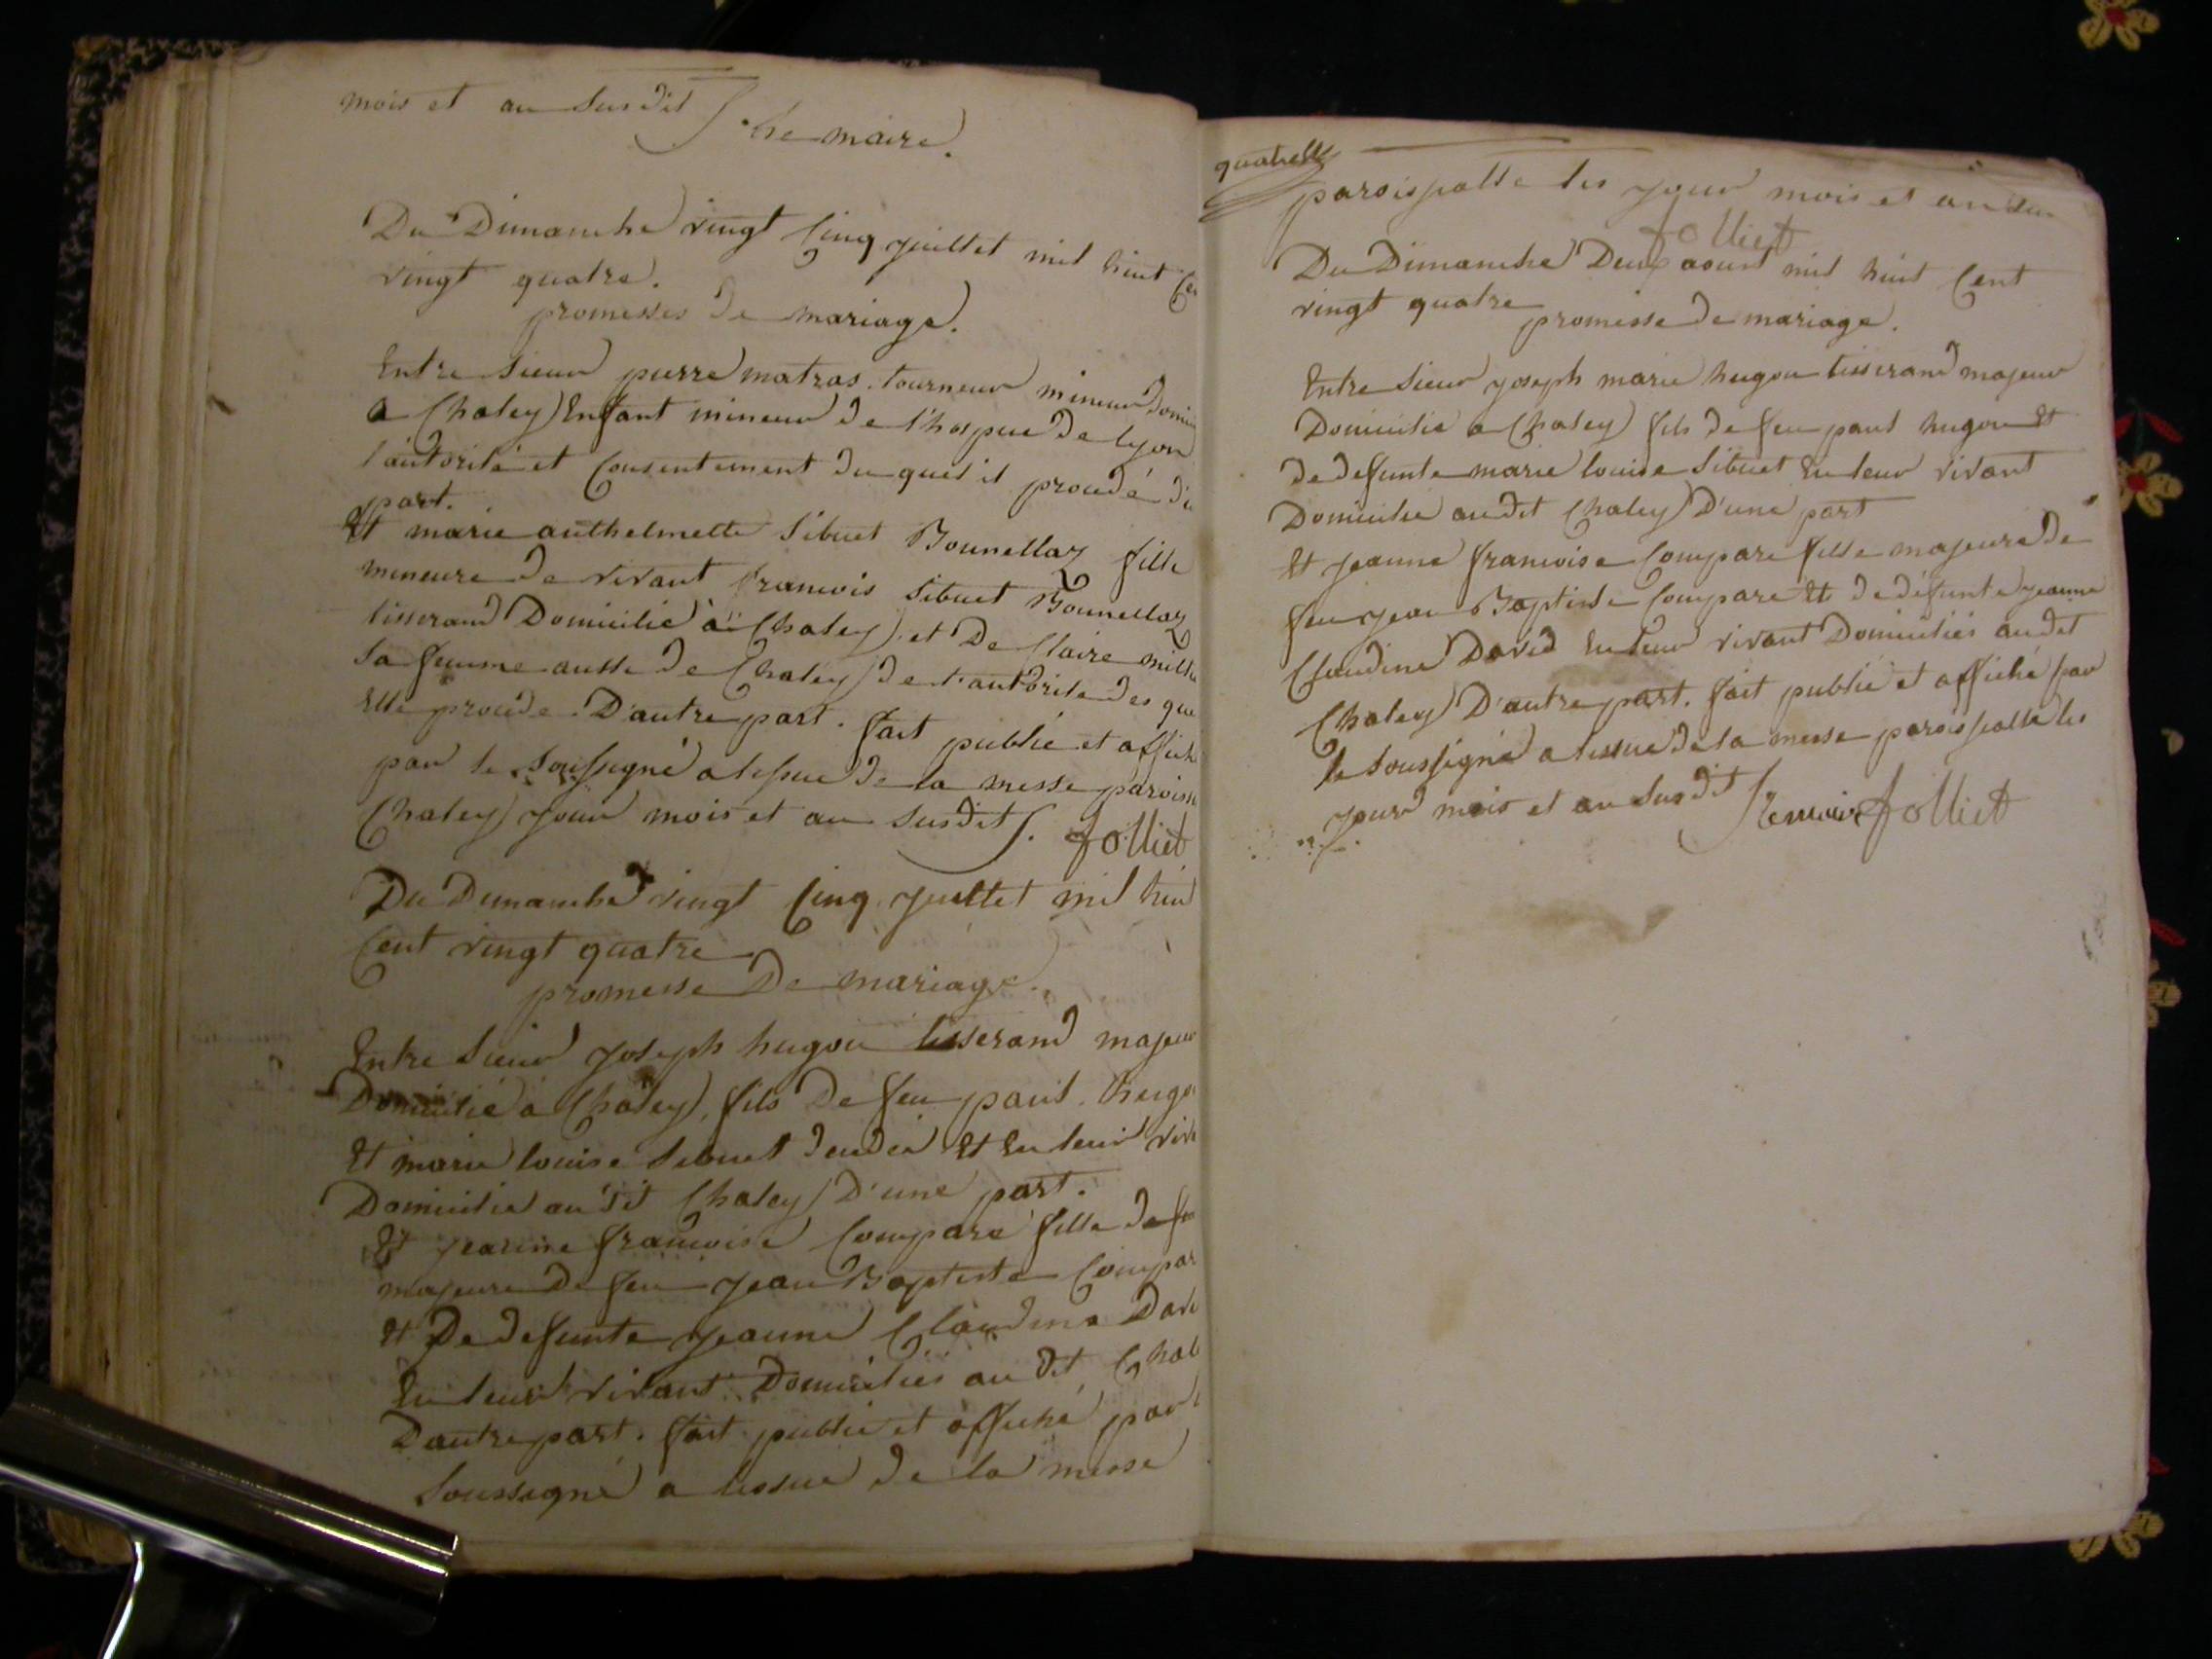 mois et an Susdit
le maire.
Du Dimanche vingt Cinq juillet mil huit Cen
vingt quatre.
promesses de mariage.
Entre Sieur pierre matras tourneur mineur Domici
a Chaley Enfant mineur de l'hospice de lyon
l'autorité et Consentement du quel il procede d'u
part.
Et marie anthelmette Sibuet Bounellaz fille
mineure de vivant francois Sibuet Bounellaz
tisserand Domicilié à Chaley et De Claire
Sa femme aussi de Chaley de l'autorite des que
Elle procede D'autre part. fait publié et affich
par le Soussigné a lissue de la messe paroiss
Chaley jour mois et an Susdit. Jolliet
Du Dimanche vingt Cinq juillet mil hui
Cent vingt quatre
promesse De mariage.
Entre Sieur joseph hugon tisserand majeur
Domicilié a Chaley, fils De feu paul hugo
Et marie louise Sibuet Et En leur viv
Domicilié au dit Chaley D'une part.
Et jeanne francoise Compare fille de feu
majeure De feu jean Baptiste Compar
Et De defunte jeanne Claudine Davi
En leur vivant Domiciliés au dit Chal
D'autre part. fait publié et affiché par l
Soussigné a lissue de la messe
paroissialle les jour mois et an sus
Jolliet
Du Dimanche Deux aoust mil huit Cent
vingt quatre
promesse de mariage.
Entre Sieur joseph marie hugon tisserand majeur
Domicilié a Chaley fils de feu paul hugon Et
de defunte marie louise Sibuet En leur vivant
Domicilié audit Chaley D'une part
Et jeanne francoise Compare fille majeure de
feu jean Baptiste Compare Et de défunte jeanne
Claudine David En leur vivant Domiciliés audit
Chaley D'autre part. fait publié et affiché par
le Soussigné a lissue de la messe paroissialle les
jour mois et an Susdit Jolliet